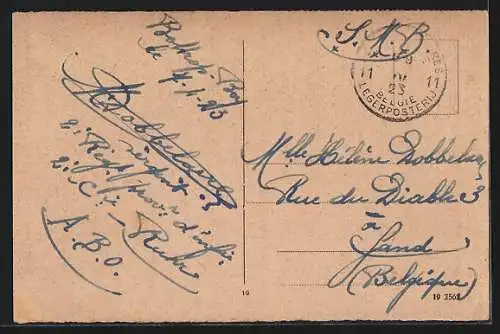 Bottrop Boy
le 7/4/23
Dobbelaere
2: Regt prov. d'inf:
2: Cie
Ruhr
A.B.O.
S.M.B.
11 IV 23 11
BELGIE
LEGERPOSTERIJ
Melle Hélène Dobbelaere
Rue du Diable 3
à
Gand
(Belgique)
10
19 3562